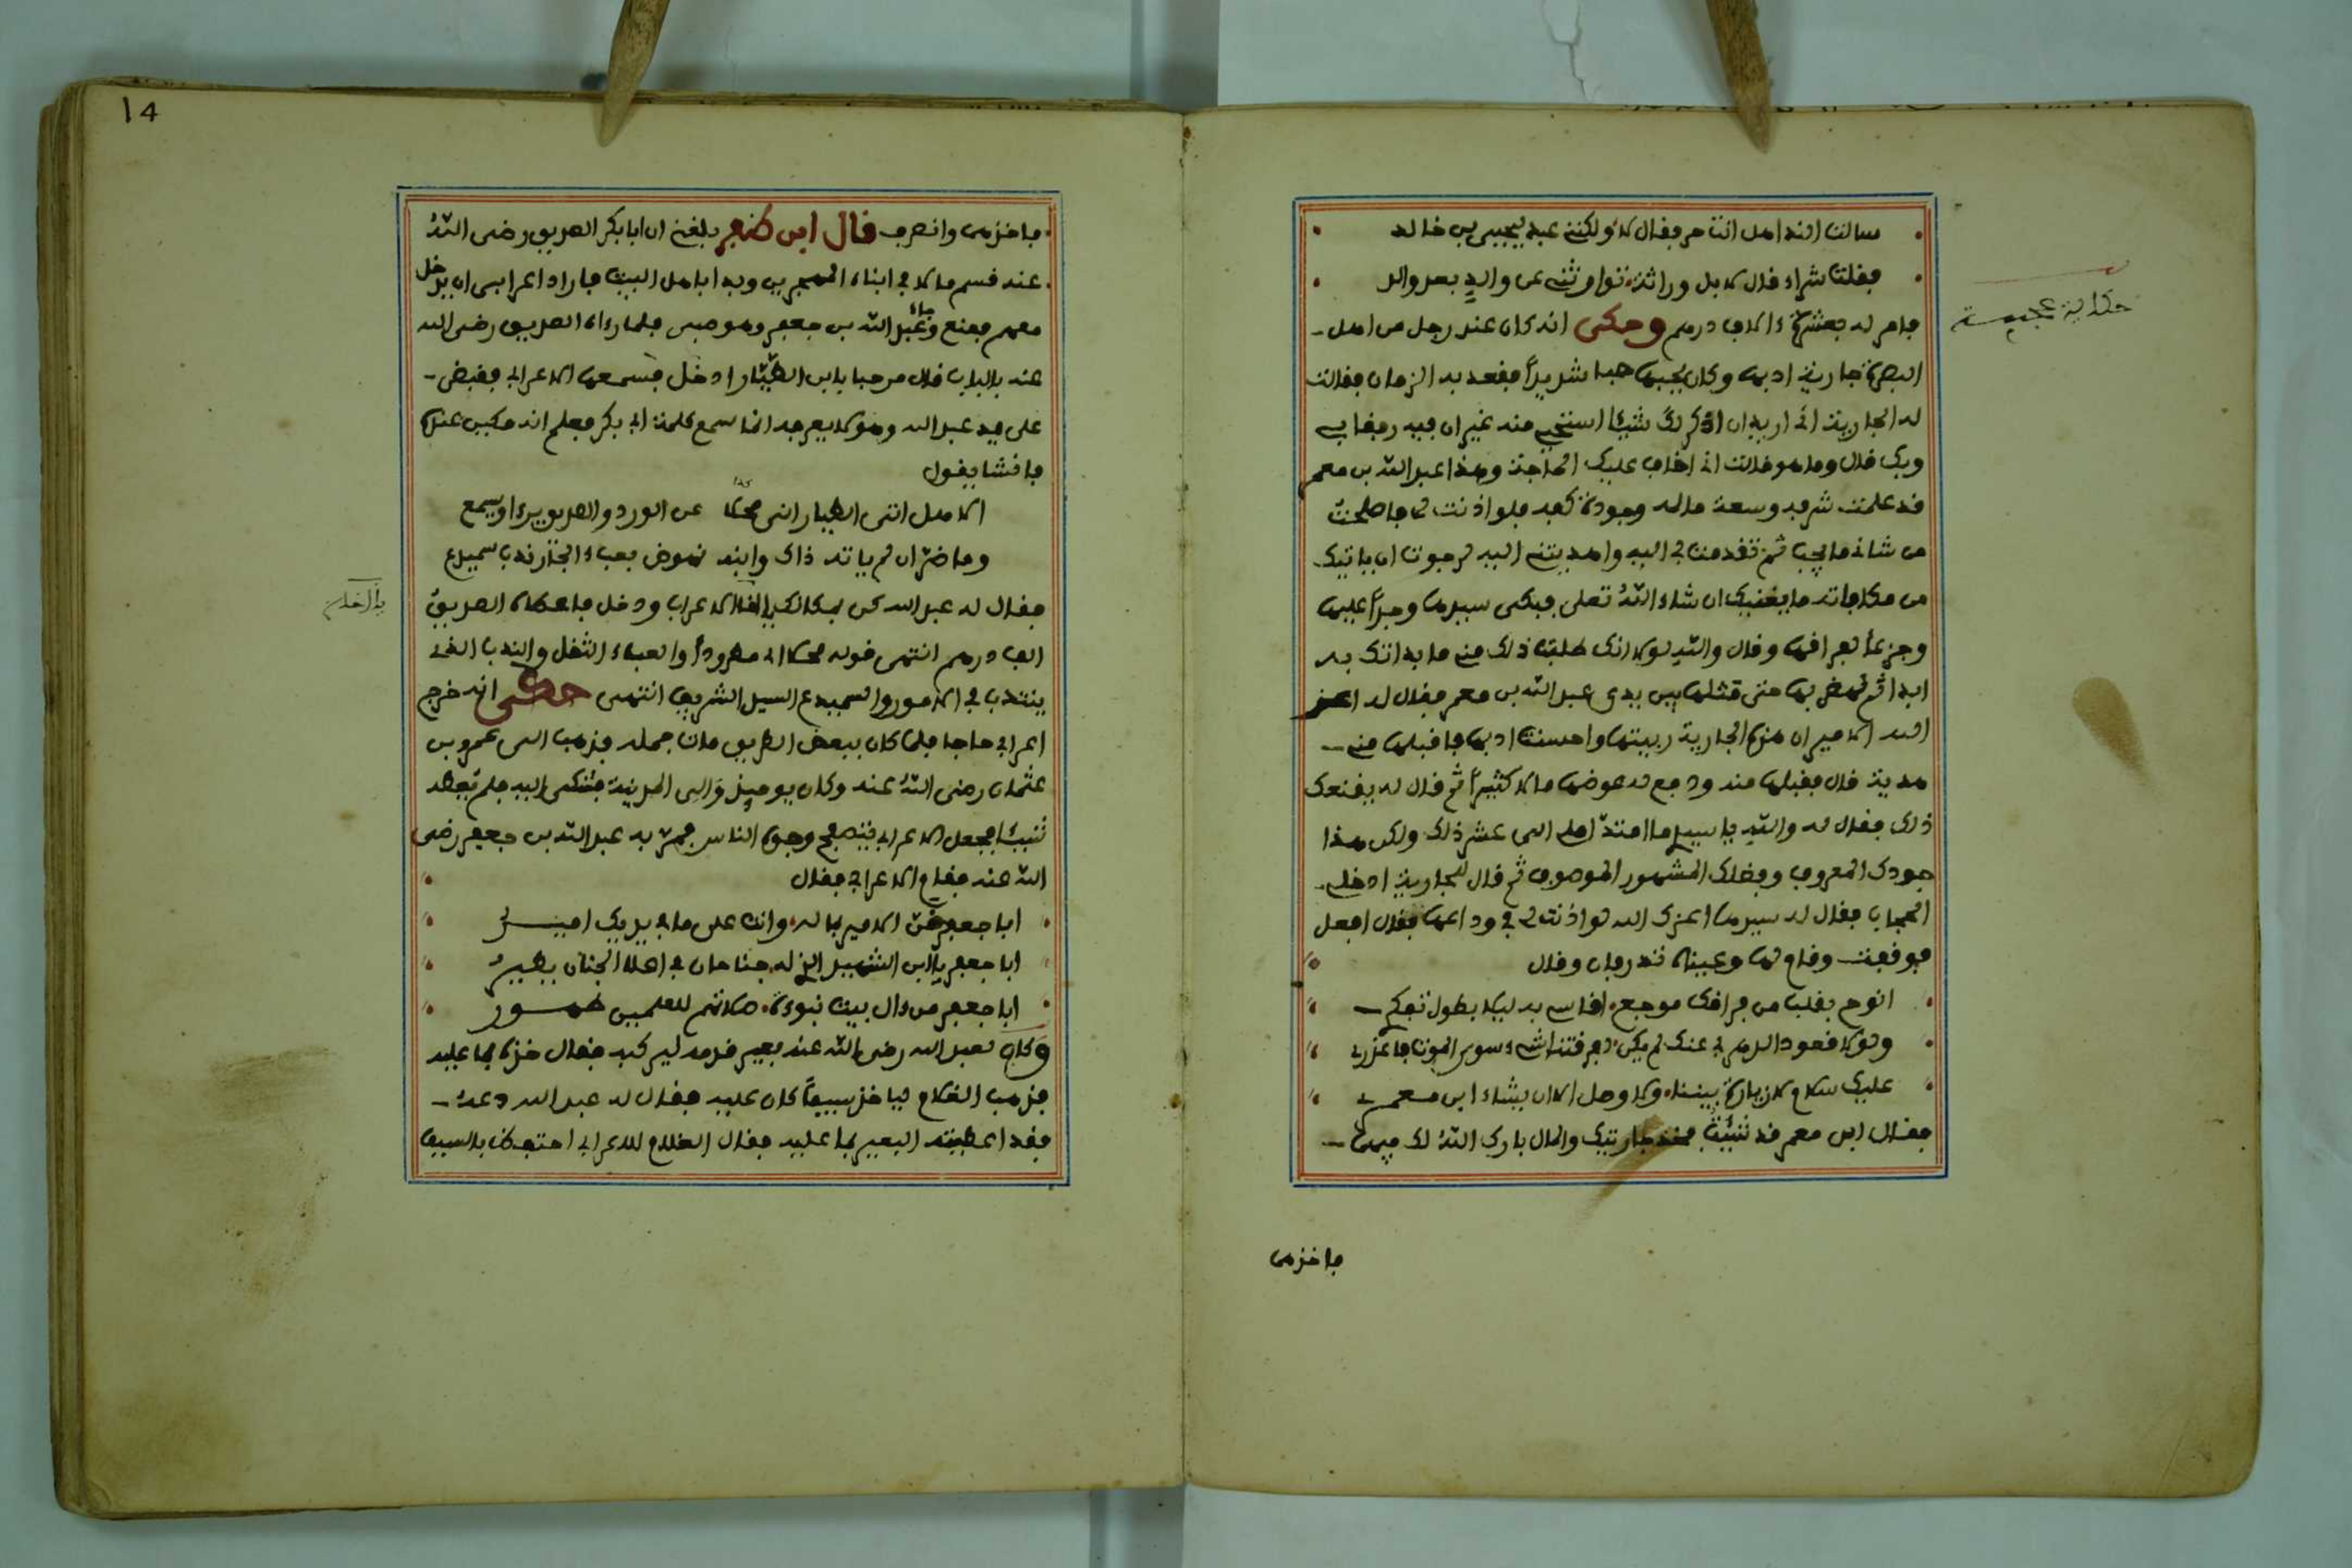 سالت الندا هل انت حر فقال لا ولكنني عبد ليحيى بن خالد
فقلت شراء قال لا بل وراثة توارثني عن والد بعد والد
فامر له بعشرة ءالاف درهم وحكى انه كان عند رجل من اهل
البصرة جارية اديبة وكان يحبها حبا شديدا فقعد به الزمان فقالت
له الجارية اني اريد ان اذكر لك شيئا استحي منه غير ان فيه رفقا بي
وبك قال وما هو قالت اني اخاف عليك الحاجة وهذا عبد الله بن معمر
قد علمت شرفه وسعة ماله وجودة كفه فلو اذنت لي فاصلحت
من شاني ما يجب ثم تقدمت بي اليه واهديتني اليه لرجوت ان ياتيك
من مكافاته ما يغنيك ان شاء الله تعلى فبكى سيدها وجدا عليها
وجزعا لفراقها وقال والله لولا انك طلبت ذلك مني ما بداتك به
ابدا ثم نهض بها حتى مثلها بين يدي عبد الله بن معمر فقال له اعز
الله الامير ان هذه الجارية ربيتها واحسنت ادبها فاقبلها مني
هدية قال فقبلها منه ودفع له عوضها مالا كثيرا ثم قال له يقنعك
ذلك فقال له والله يا سيدي ما امتد املي الى عشر ذلك ولكن هذا
جودك المعروف وفضلك المشهور الموصوف ثم قال للجارية ادخلي
الحجاب فقال له سيدها اعزك الله لو اذنت لي في وداعها فقال افعل
فوقفت وقام لها وعيناه تذرفان وقال
انوح بقلب من فراقك موجع اقاسي به ليلا يطول تفكري
ولولا قعود الدهر بي عنك لم يكن لفرقتنا شيء سوى الموت فاعذري
عليك سلام لا زيارة بيننا ولا وصل الا ان يشاء ابن معمر
فقال ابن معمر قد شئت فخذ جاريتك والمال بارك الله لك فيها
فاخذها
حكاية عجيبة
14
فاخذها وانصرف قال ابن ظفر بلغني ان ابا بكر الصديق رضي الله
عنه قسم مالا في ابناء المهجرين وبدا باهل البيت فاراد اعرابي ان يدخل
معهم فمنع وجاء عبد الله بن جعفر وهو صبي فلما رءاه الصديق رضي الله
عنه بالباب قال مرحبا بابن الطيار ادخل فسمعها الاعرابي فقبض
على يد عبد الله وهو لا يعرفه انما سمع كلمة ابي بكر فعلم انه مكين عنده
فانشا يقول
الا هل اتى الطيار اني محلأ عن الورد والصديق يرءا ويسمع
وما ضر ان لم ياته ذاك وابنه نهوض بعبء الجار ندب سميدع
فقال له عبد الله كن بمكانك يا اخا الاعراب ودخل فاعطاه الصديق
الف درهم انتهى قوله محلأ اي مطرودا والعبء الثقل والندب الذي
ينتدب في الامور والسميدع السيد الشريف انتهى حكى انه خرج
اعرابي حاجا فلما كان ببعض الطريق مات جمله فذهب الى عمرو بن
عثمان رضي الله عنه وكان يومئذ والي المدينة فشكى اليه فلم يعطه
شيئا فجعل الاعرابي يتصفح وجوه الناس فمر به عبد الله بن جعفر رضي
الله عنه فقام الاعرابي فقال
ابا جعفر ضن الامير بماله وانت على ما في يديك امير
ابا جعفر يا ابن الشهيد الذي له جناحان في اعلا الجنان يطير
ابا جعفر من ءال بيت نبوءة صلاتهم للعلمين طهور
وكان لعبد الله رضي الله عنه بعير قدمه ليركبه فقال خذه بما عليه
فذهب الغلام لياخذ سيفا كان عليه فقال له عبد الله دعه
فقد اعطيته البعير بما عليه فقال الغلام للاعرابي احتفظ بالسيف